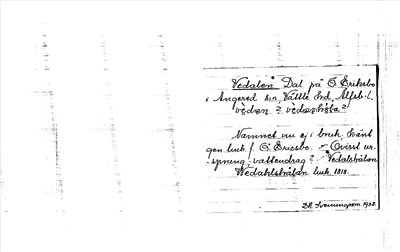 Vedalen Dal på S. Eriksbo
i Angered sn, Vättle hd, Älfsb. l.
vèdan ? vèdanhöta ?
Namnet nu ej i bruk. Svänt
gen luck / S. Ericsbo. – Ovisst ur-
sprung, vattendrag ? Vedalshålan
Wedahlshålan luck. 1818.
1928